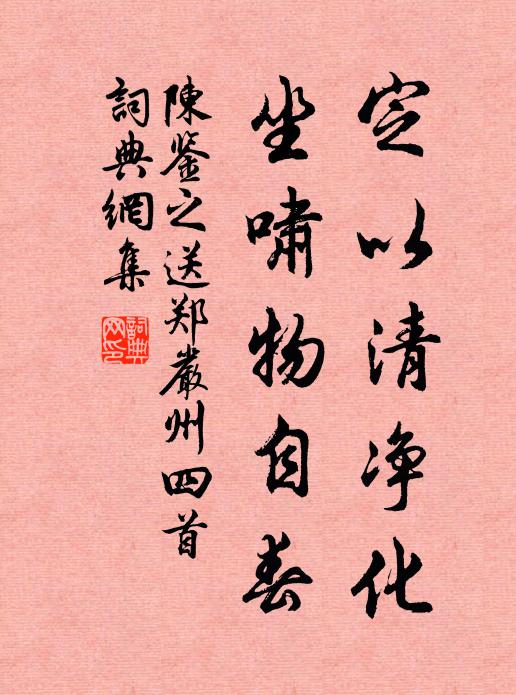 定以清净化
坐啸物自春
陳鉴之送郑嚴州四首
詞典網集
詞典網印